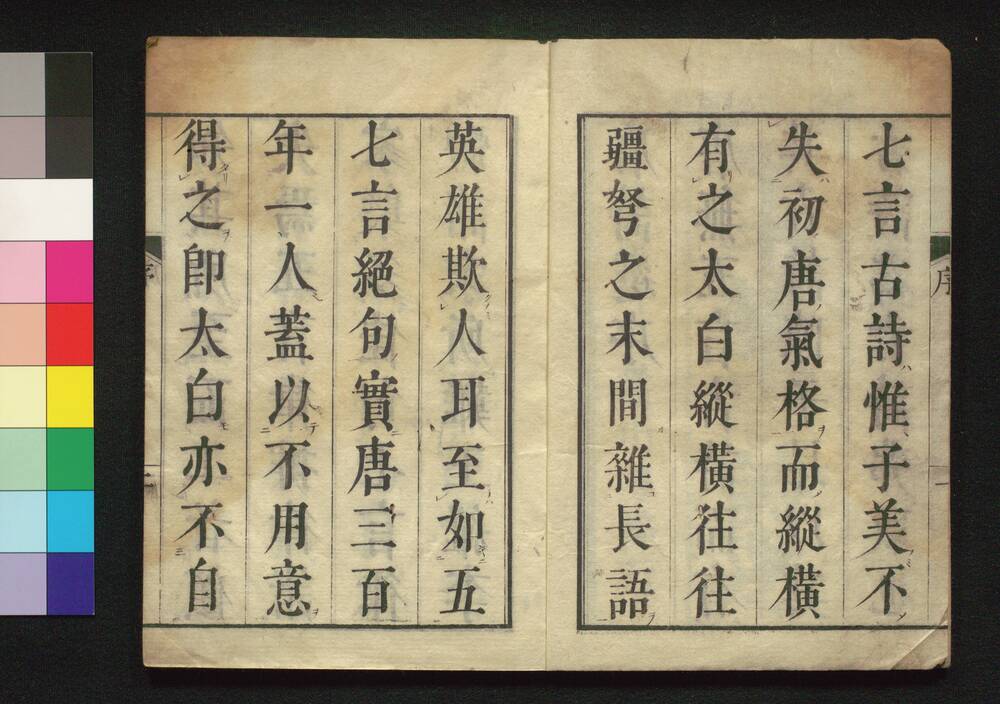 七言古詩惟子美不
失初唐氣格而縱橫
有之太白縱橫往往
疆弩之末間雜長語
英雄欺人耳至如五
七言絕句實唐三百
年一人蓋以不用意
得之卽太白亦不自
序